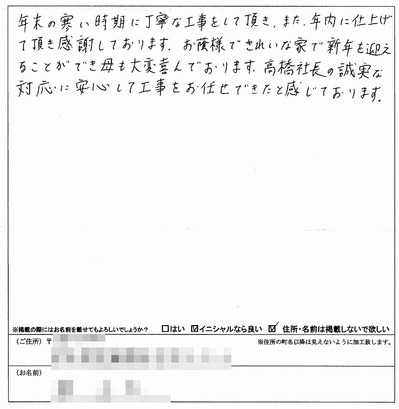 年末の寒い時期に丁寧な工事をして頂き、また、年内に仕上げ
て頂き感謝しております。お蔭様できれいな家で新年を迎え
ることができ母も大変喜んでおります。高橋社長の誠実な
対応に安心して工事をお任せできたと感じております。
※掲載の際にはお名前を載せてもよろしいでしょうか? □はい ☑イニシャルなら良い ☑住所・名前は掲載しないで欲しい
(ご住所) 〒 ※住所の町名以降は見えないように加工致します。
(お名前)